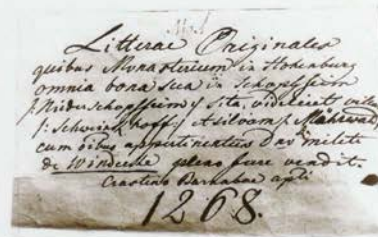 Litterae Originales
quibus Monasterium in Hohenburg
omnia bona sua in Schopfheim
/: Niderschopfheim :/ sita, videlicet
/: Schweinhoff / et silvam /
cum oibus appertinentiis D
de Windecke pleno jure vendit.
Crastino Barnabae apli
1268.